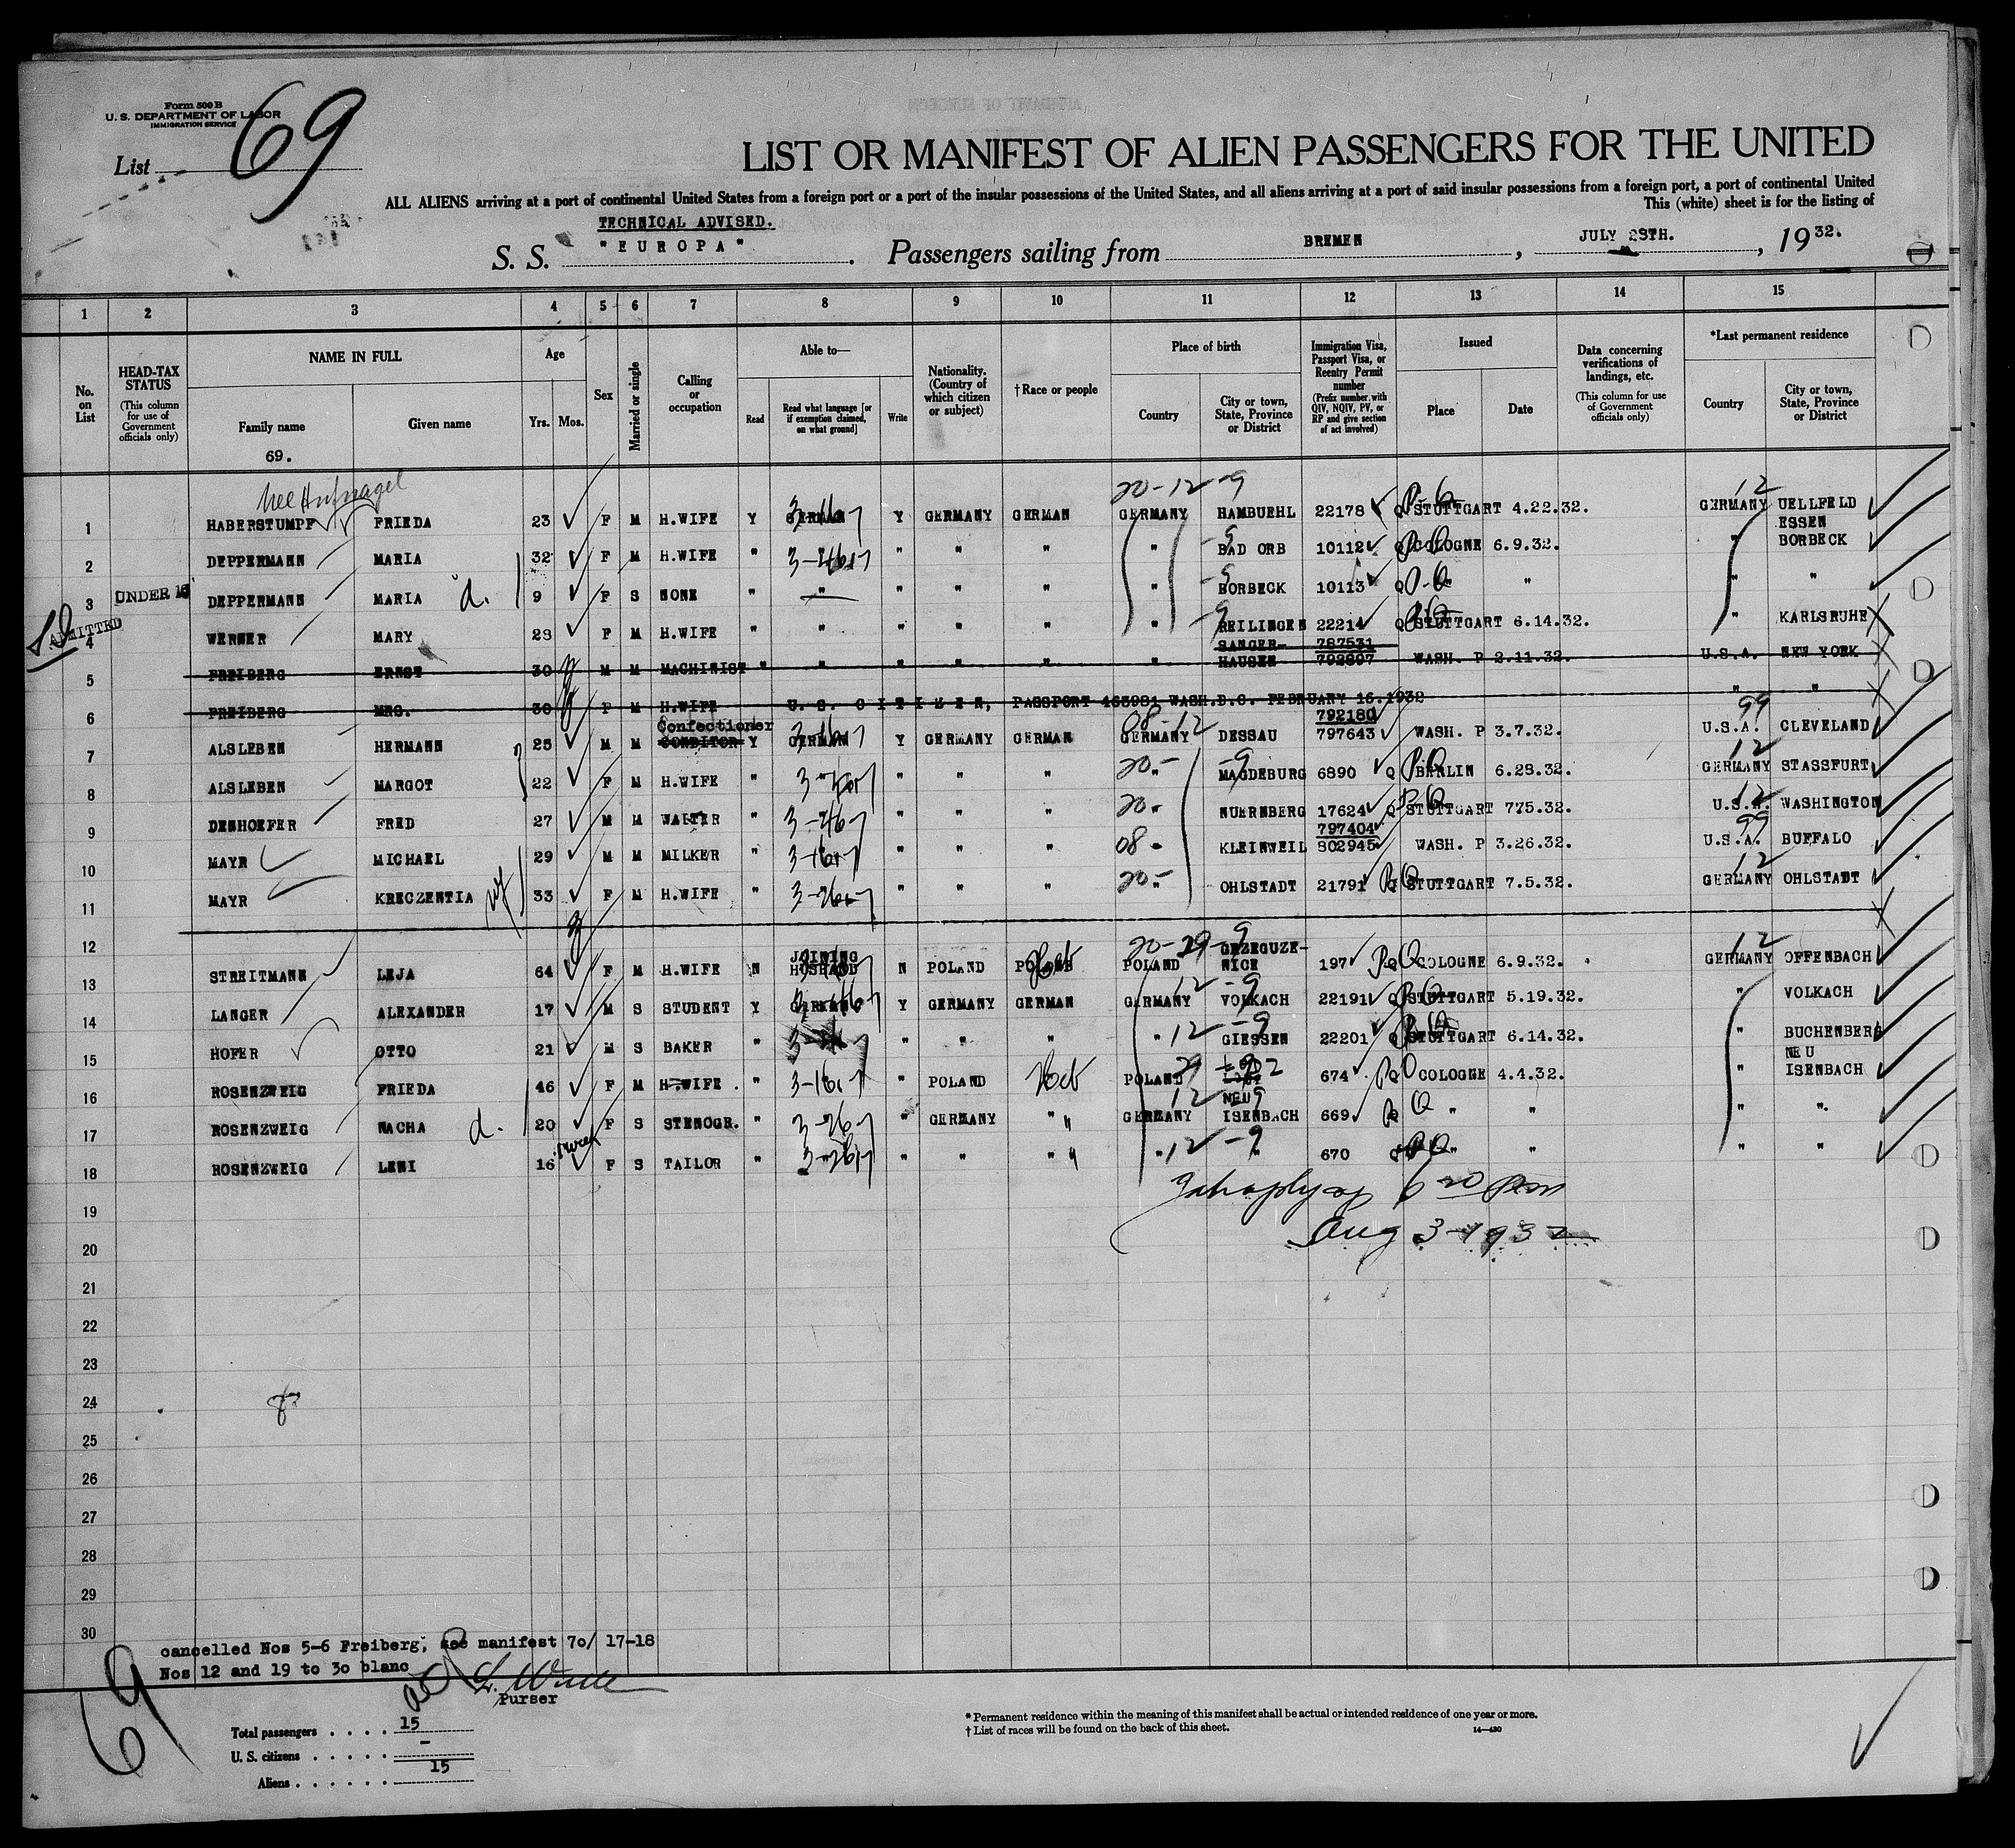 Form 500 B
U. S. DEPARTMENT OF LABOR
IMMIGRATION SERVICE
List 69
LIST OR MANIFEST OF ALIEN PASSENGERS FOR THE UNITED
ALL ALIENS arriving at a port of continental United States from a foreign port or a port of the insular possessions of the United States, and all aliens arriving at a port of said insular possessions from a foreign port, a port of continental United
This (white) sheet is for the listing of
TECHNICAL ADVISED.
S. S. "EUROPA". Passengers sailing from BREMEN, JULY 28TH., 1932.
1 2 3 4 5 6 7 8 9 10 11 12 13 14 15
No. on List
HEAD-TAX STATUS (This column for use of Government officials only)
NAME IN FULL
Family name
Given name
69.
Age
Yrs. Mos.
Sex
Married or single
Calling or occupation
Able to—
Read
Read what language [or if exemption claimed, on what ground]
Write
Nationality. (Country of which citizen or subject)
† Race or people
Place of birth
Country
City or town, State, Province or District
Immigration Visa, Passport Visa, or Reentry Permit number (Prefix number with QIV, NQIV, PV, or RP and give section of act involved)
Issued
Place
Date
Data concerning verifications of landings, etc. (This column for use of Government officials only)
*Last permanent residence
Country
City or town, State, Province or District
nee Hufnagel
20-12-9 12
1 HABERSTUMPF FRIEDA 23 F M H.WIFE Y GERMAN Y GERMANY GERMAN GERMANY HAMBUEHL 22178 Q STUTTGART 4.22.32. GERMANY UELLFELD
2 DEPPERMANN MARIA 32 F M H.WIFE " " " " " BAD ORB 10112 Q COLOGNE 6.9.32. " ESSEN BORBECK
3 UNDER 16 DEPPERMANN MARIA d. 9 F S NONE " " " " " " BORBECK 10113 Q " " " "
4 ADMITTED WERNER MARY 28 F M H.WIFE " " " " " " REILINGEN 22214 Q STUTTGART 6.14.32. " KARLSRUHE
5 FREIBERG ERNST 30 M M MACHINIST " " " " " " SANGER-HAUSEN 787531 792897 WASH. P 2.11.32. U.S.A. NEW YORK
6 FREIBERG MRS. 30 F M H.WIFE U. S. CITIZEN, PASSPORT 463981 WASH.D.C. FEBRUARY 16.1932 " "
7 ALSLEBEN HERMANN 25 M M Confectioner CONDITOR Y GERMAN Y GERMANY GERMAN GERMANY DESSAU 792180 797643 WASH. P 3.7.32. U.S.A. CLEVELAND
8 ALSLEBEN MARGOT 22 F M H.WIFE " " " " " MAGDEBURG 6890 Q BERLIN 6.28.32. GERMANY STASSFURT
9 DENHOEFER FRED 27 M M WAITER " " " " NUERNBERG 17624 Q STUTTGART 775.32. U.S.A. WASHINGTON
10 MAYR MICHAEL 29 M M MILKER " " " " KLEINWEIL 797404 802945 WASH. P 3.26.32. U.S.A. BUFFALO
11 MAYR KRECZENTIA wf 33 F M H.WIFE " " " " " OHLSTADT 21791 Q STUTTGART 7.5.32. GERMANY OHLSTADT
12
13 STREITMANN LEJA 64 F M H.WIFE N JOINING HUSBAND N POLAND POLAND POLAND GRZEGUZE-NICE 197 Q COLOGNE 6.9.32. GERMANY OFFENBACH
14 LANGER ALEXANDER 17 M S STUDENT Y GERMAN Y GERMANY GERMAN GERMANY VOLKACH 22191 Q STUTTGART 5.19.32. " VOLKACH
15 HOFER OTTO 21 M S BAKER " " " " " GIESSEN 22201 Q STUTTGART 6.14.32. " BUCHENBERG
16 ROSENZWEIG FRIEDA 46 F M H-WIFE . " " POLAND Heb POLAND LODZ 674 Q COLOGNE 4.4.32. " NEU ISENBACH
17 ROSENZWEIG NACHA d. 20 F S STENOGR. " " GERMANY " GERMANY NEU ISENBACH 669 Q " " " ".
18 ROSENZWEIG LENI 16 F S TAILOR " " " " " " 670 Q " " " "
6 20 pm
Aug 3-1932
19
20
21
22
23
24
25
26
27
28
29
30
cancelled Nos 5-6 Freiberg, see manifest 70/ 17-18
Nos 12 and 19 to 30 blanc
Purser
69
Total passengers . . . . 15
U. S. citizens . . . . . -
Aliens . . . . . . 15
* Permanent residence within the meaning of this manifest shall be actual or intended residence of one year or more.
† List of races will be found on the back of this sheet. 14—430